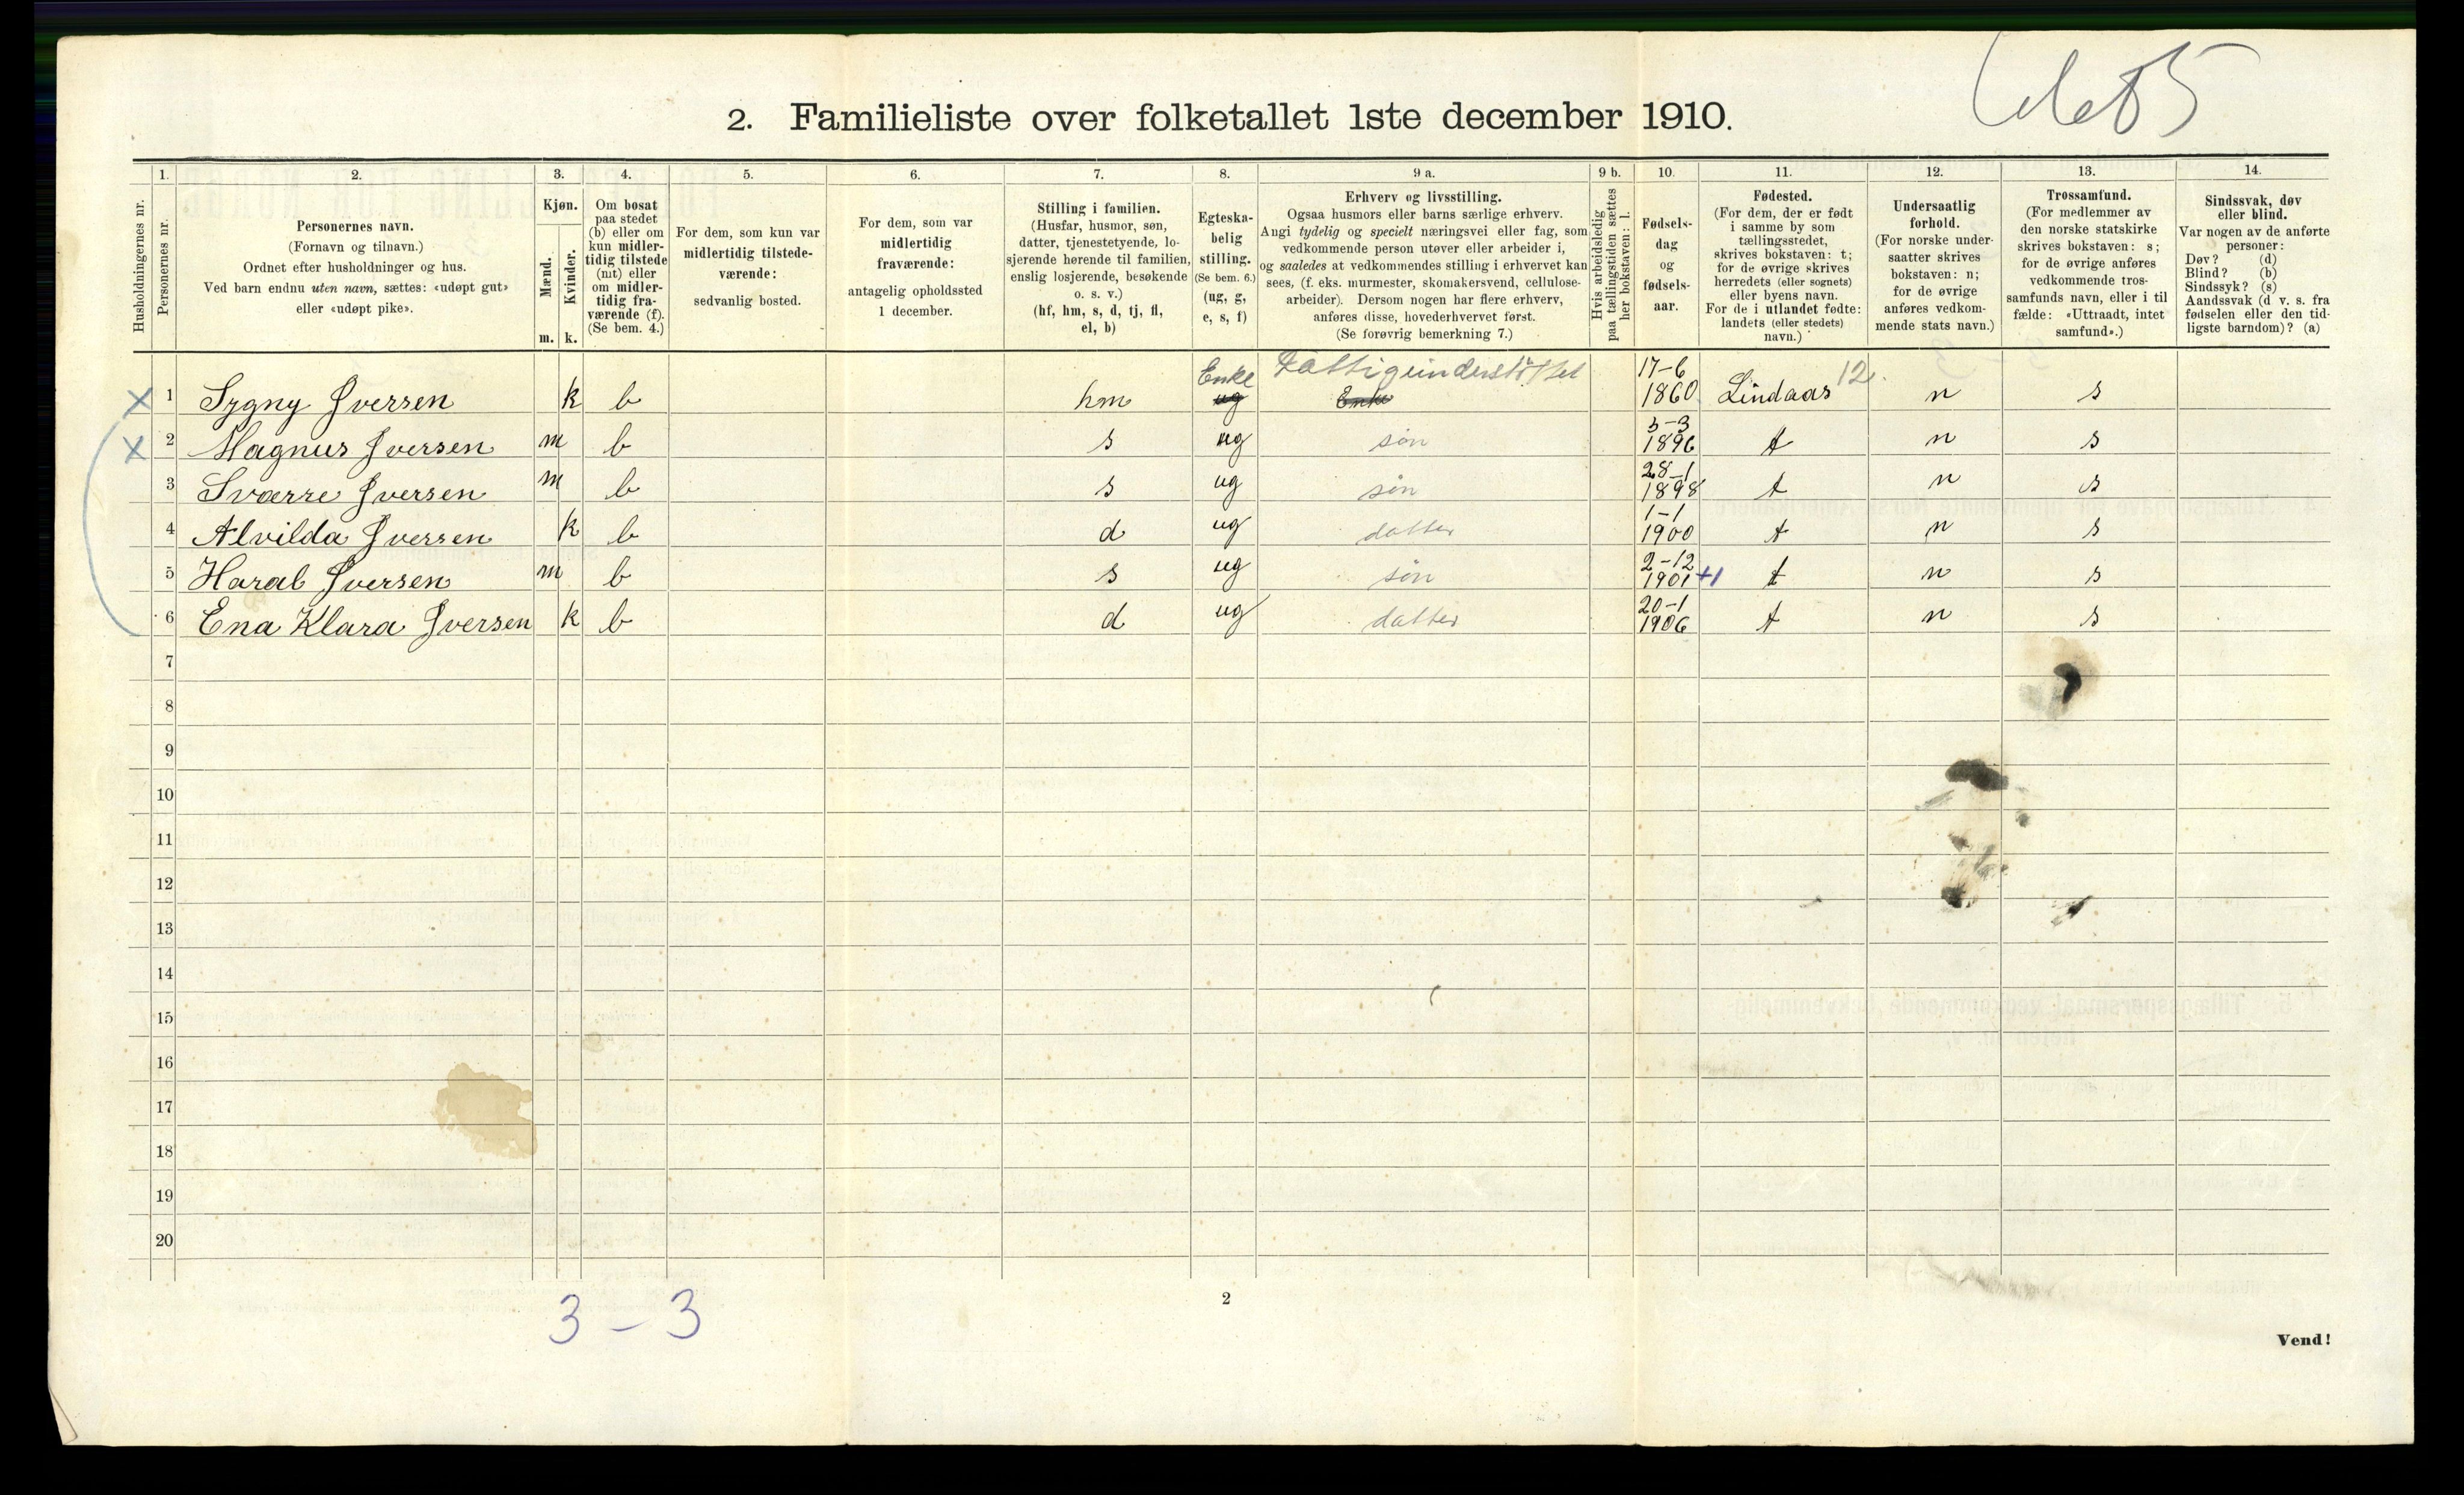 2. Familieliste over folketallet 1ste december 1910.
1. 2. 3. 4. 5. 6. 7. 8. 9 a. 9 b. 10. 11. 12. 13. 14.
Husholdningernes nr.
Personernes nr.
Personernes navn.
(Fornavn og tilnavn.)
Ordnet efter husholdninger og hus.
Ved barn endnu uten navn, sættes: «udøpt gut»
eller «udøpt pike».
Kjøn.
Mænd.
Kvinder.
m. k.
Om bosat
paa stedet
(b) eller om
kun midler-
tidig tilstede
(mt) eller
om midler-
tidig fra-
værende (f).
(Se bem. 4.)
For dem, som kun var
midlertidig tilstede-
værende:
sedvanlig bosted.
For dem, som var
midlertidig
fraværende:
antagelig opholdssted
1 december.
Stilling i familien.
(Husfar, husmor, søn,
datter, tjenestetyende, lo-
sjerende hørende til familien,
enslig losjerende, besøkende
o. s. v.)
(hf, hm, s, d, tj, fl,
el, b)
Egteska-
belig
stilling.
(Se bem. 6.)
(ug, g,
e, s, f)
Erhverv og livsstilling.
Ogsaa husmors eller barns særlige erhverv.
Angi tydelig og specielt næringsvei eller fag, som
vedkommende person utøver eller arbeider i,
og saaledes at vedkommendes stilling i erhvervet kan
sees, (f. eks. murmester, skomakersvend, cellulose-
arbeider). Dersom nogen har flere erhverv,
anføres disse, hovederhvervet først.
(Se forøvrig bemerkning 7.)
Hvis arbeidsledig
paa tællingstiden sættes
her bokstaven: l.
Fødsels-
dag
og
fødsels-
aar.
Fødested.
(For dem, der er født
i samme by som
tællingsstedet,
skrives bokstaven: t;
for de øvrige skrives
herredets (eller sognets)
eller byens navn.
For de i utlandet fødte:
landets (eller stedets)
navn.)
Undersaatlig
forhold.
(For norske under-
saatter skrives
bokstaven: n;
for de øvrige
anføres vedkom-
mende stats navn.)
Trossamfund.
(For medlemmer av
den norske statskirke
skrives bokstaven: s;
for de øvrige anføres
vedkommende tros-
samfunds navn, eller i til
fælde: «Uttraadt, intet
samfund».)
Sindssvak, døv
eller blind.
Var nogen av de anførte
personer:
Døv? (d)
Blind? (b)
Sindssyk? (s)
Aandssvak (d v. s. fra
fødselen eller den tid-
ligste barndom)? (a)
Enke Fattigunderstöttet 17-6
X 1 Sygny Iversen k b hm ug Enke 1860 Lindaas 12. n s
X 2 Magnus Iversen m b s ug søn 3-3 1896 t n s
3 Sværre Iversen m b s ug søn 28-1 1898 t n s
4 Alvilda Iversen k b d ug datter 1-1 1900 t n s
5 Haral Iversen m b s ug søn 2-12 1901 +1 t n s
6 Ena Klara Iversen k b d ug datter 20-1 1906 t n s
7
8
9
10
11
12
13
14
15
16
17
18
19
20
3 - 3
2
Vend!